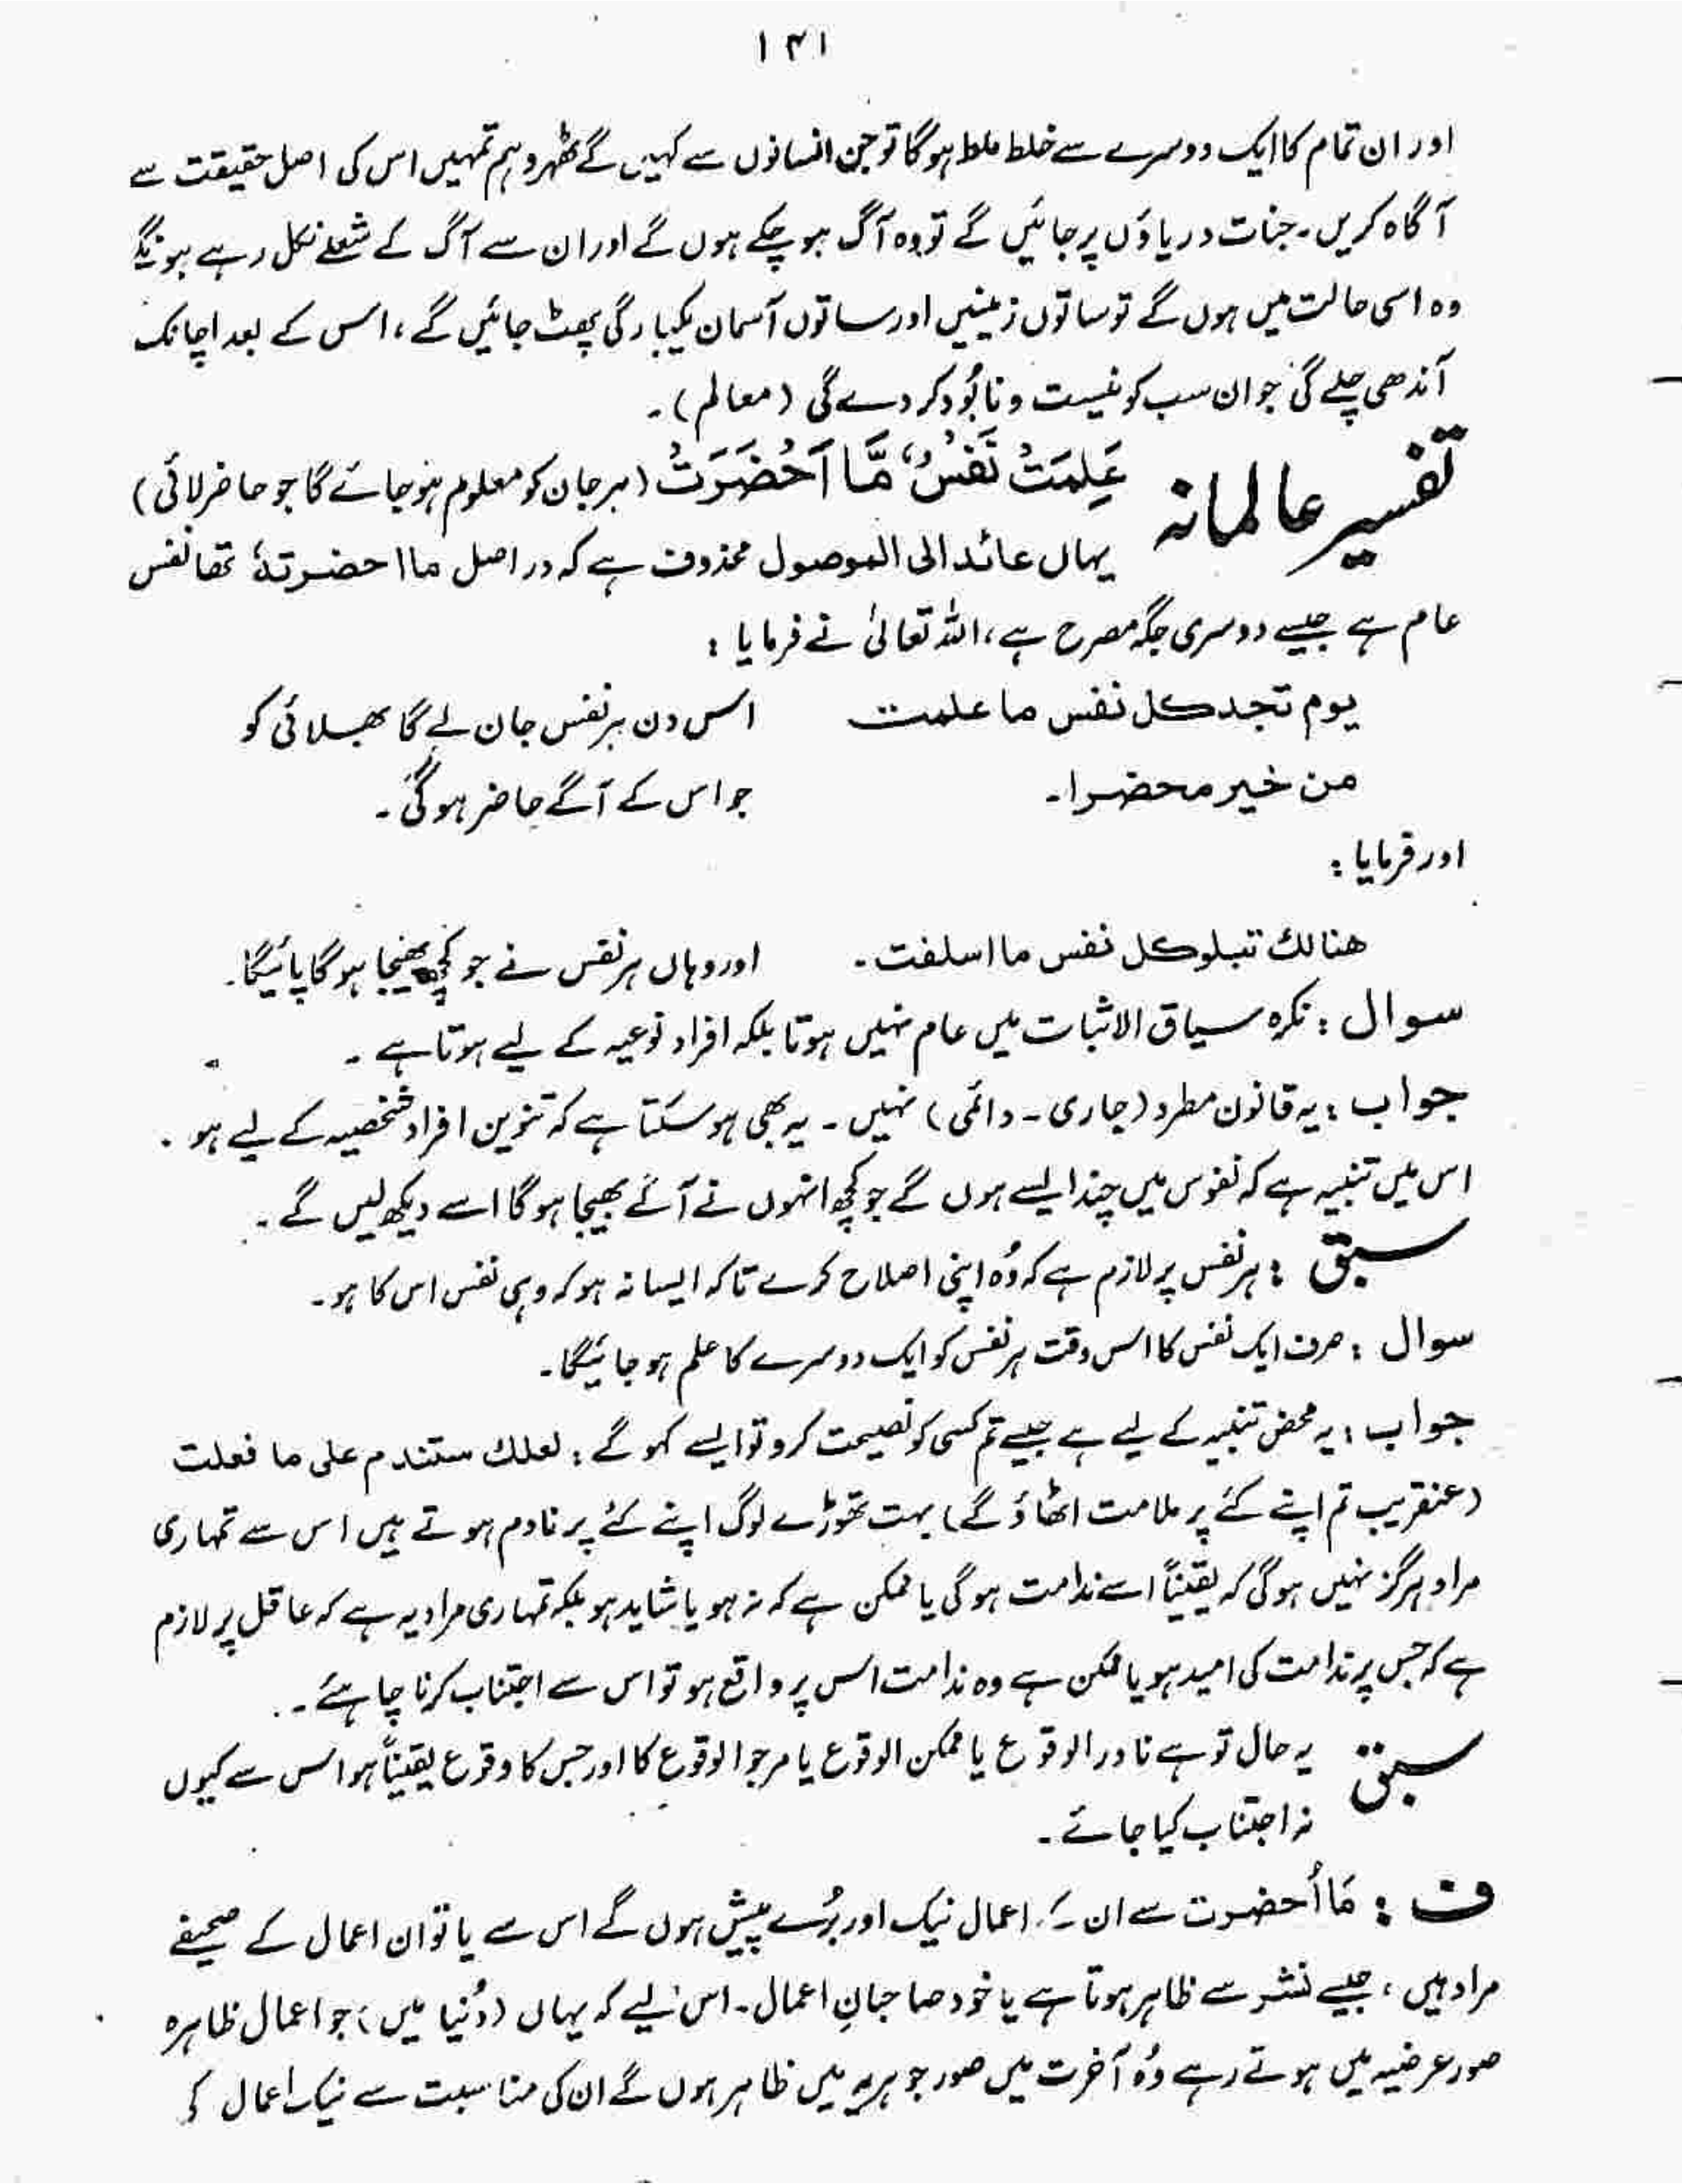 ۱۴۱
اور ان تمام کا ایک دوسرے سے خلط ملط ہوگا تو جن انسانوں سے کہیں گے ٹھہرو ہم تمہیں اس کی اصل حقیقت سے
آگاہ کریں۔ جنات دریاؤں پر جائیں گے تو وہ آگ ہو چکے ہوں گے اور ان سے آگ کے شعلے نکل رہے ہونگے
وہ اسی حالت میں ہوں گے تو ساتوں زمینیں اور ساتوں آسمان یکبارگی پھٹ جائیں گے، اس کے بعد اچانک
آندھی چلے گی جو ان سب کو نیست و نابُود کر دے گی (معالم)۔
تفسیر عالمانہ عَلِمَتْ نَفْسٌ مَّا اَحْضَرَتْ (ہر جان کو معلوم ہو جائے گا جو حاضر لائی)
یہاں عائد الی الموصول محذوف ہے کہ در اصل ما احضرتہٗ تھا نفس
عام ہے جیسے دوسری جگہ مصرح ہے، اللہ تعالیٰ نے فرمایا :
یوم تجد کل نفس ما علمت اس دن ہر نفس جان لے گا بھلائی کو
من خیر محضرا۔ جو اس کے آگے حاضر ہو گی۔
اور فرمایا :
ھنالك تبلو کل نفس ما اسلفت۔ اور وہاں ہر نفس نے جو کچھ بھیجا ہوگا پائیگا۔
سوال : نکرہ سیاق الاثبات میں عام نہیں ہوتا بلکہ افراد نوعیہ کے لیے ہوتا ہے ۔
جواب : یہ قانون مطرد (جاری ۔ دائمی) نہیں ۔ یہ بھی ہو سکتا ہے کہ تنوین افراد شخصیہ کے لیے ہو ۔
اس میں تنبیہ ہے کہ نفوس میں چند ایسے ہوں گے جو کچھ انہوں نے آگے بھیجا ہوگا اسے دیکھ لیں گے ۔
سبق : ہر نفس پر لازم ہے کہ وُہ اپنی اصلاح کرے تاکہ ایسا نہ ہو کہ وہی نفس اس کا ہو۔
سوال : صرف ایک نفس کا اس وقت ہر نفس کو ایک دوسرے کا علم ہو جائیگا۔
جواب : یہ محض تنبیہ کے لیے ہے جیسے تم کسی کو نصیحت کرو تو ایسے کہو گے : لعلك ستندم علی ما فعلت
(عنقریب تم اپنے کئے پر ملامت اٹھاؤ گے) بہت تھوڑے لوگ اپنے کئے پر نادم ہوتے ہیں اس سے تمہاری
مراد ہرگز نہیں ہوگی کہ یقیناً اسے ندامت ہوگی یا ممکن ہے کہ نہ ہو یا شاید ہو بلکہ تمہاری مراد یہ ہے کہ عاقل پر لازم
ہے کہ جس پر ندامت کی امید ہو یا ممکن ہے وہ ندامت اس پر واقع ہو تو اس سے اجتناب کرنا چاہئے ۔
سبق یہ حال تو ہے نادر الوقوع یا ممکن الوقوع یا مرجو الوقوع کا اور جس کا وقوع یقیناً ہو اس سے کیوں
نہ اجتناب کیا جائے ۔
ف : مَا أحضرت سے ان کے اعمال نیک اور بُرے پیش ہوں گے اس سے یا تو ان اعمال کے صحیفے
مراد ہیں، جیسے نشر سے ظاہر ہوتا ہے یا خود صاحبانِ اعمال ۔ اس لیے کہ یہاں (دُنیا میں) جو اعمال ظاہرہ
صور عرضیہ میں ہوتے رہے وُہ آخرت میں صور جوہریہ میں ظاہر ہوں گے ان کی مناسبت سے نیک اعمال کی